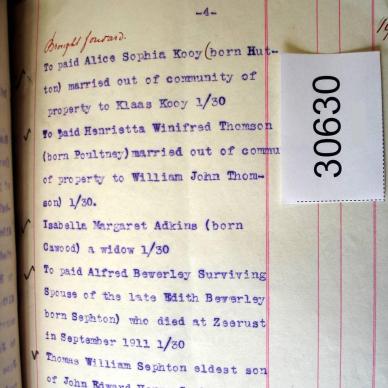 -4-
Brought forward.
To paid Alice Sophia Kooy (born Hut-
ton) married out of community of
property to Klaas Kooy 1/30
To paid Henrietta Winifred Thomson
(born Poultney) married out of commu
of property to William John Thom-
son) 1/30.
Isabella Margaret Adkins (born
Cawood) a widow 1/30
To paid Alfred Bewerley Surviving
Spouse of the late Edith Bewerley
born Sephton) who died at Zeerust
in September 1911 1/30
Thomas William Sephton eldest son
of John Edward
30630